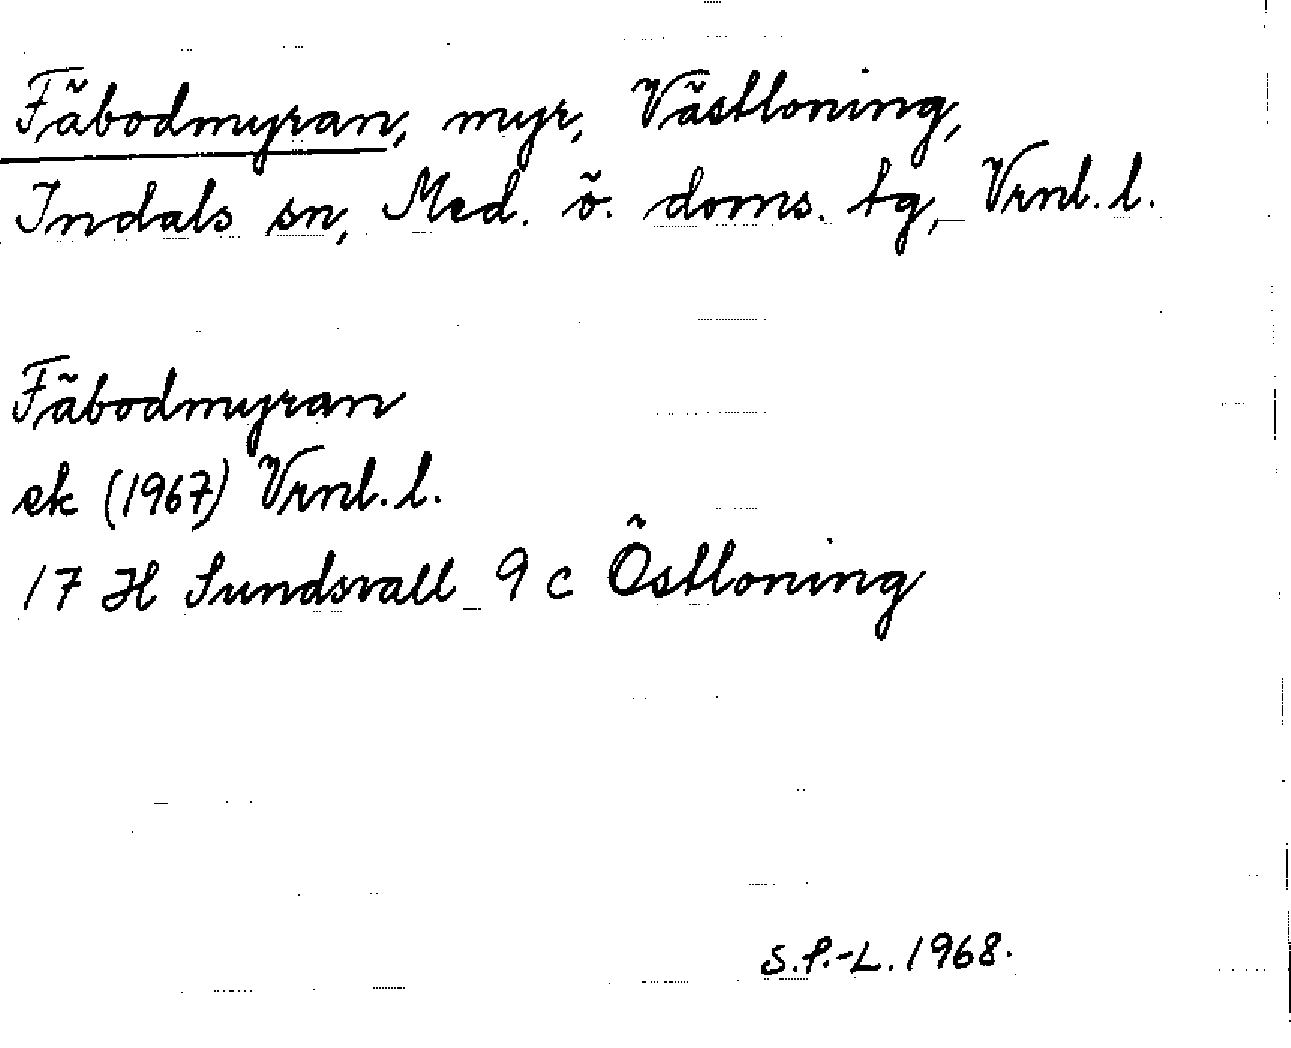 Fäbodmyran, myr, Västloning,
Indals sn, Med. ö. doms. tg, Vrnl. l.
Fäbodmyran
ek (1967) Vrnl. l.
17 H Sundsvall 9 c Östloning
S.P.-L. 1968.